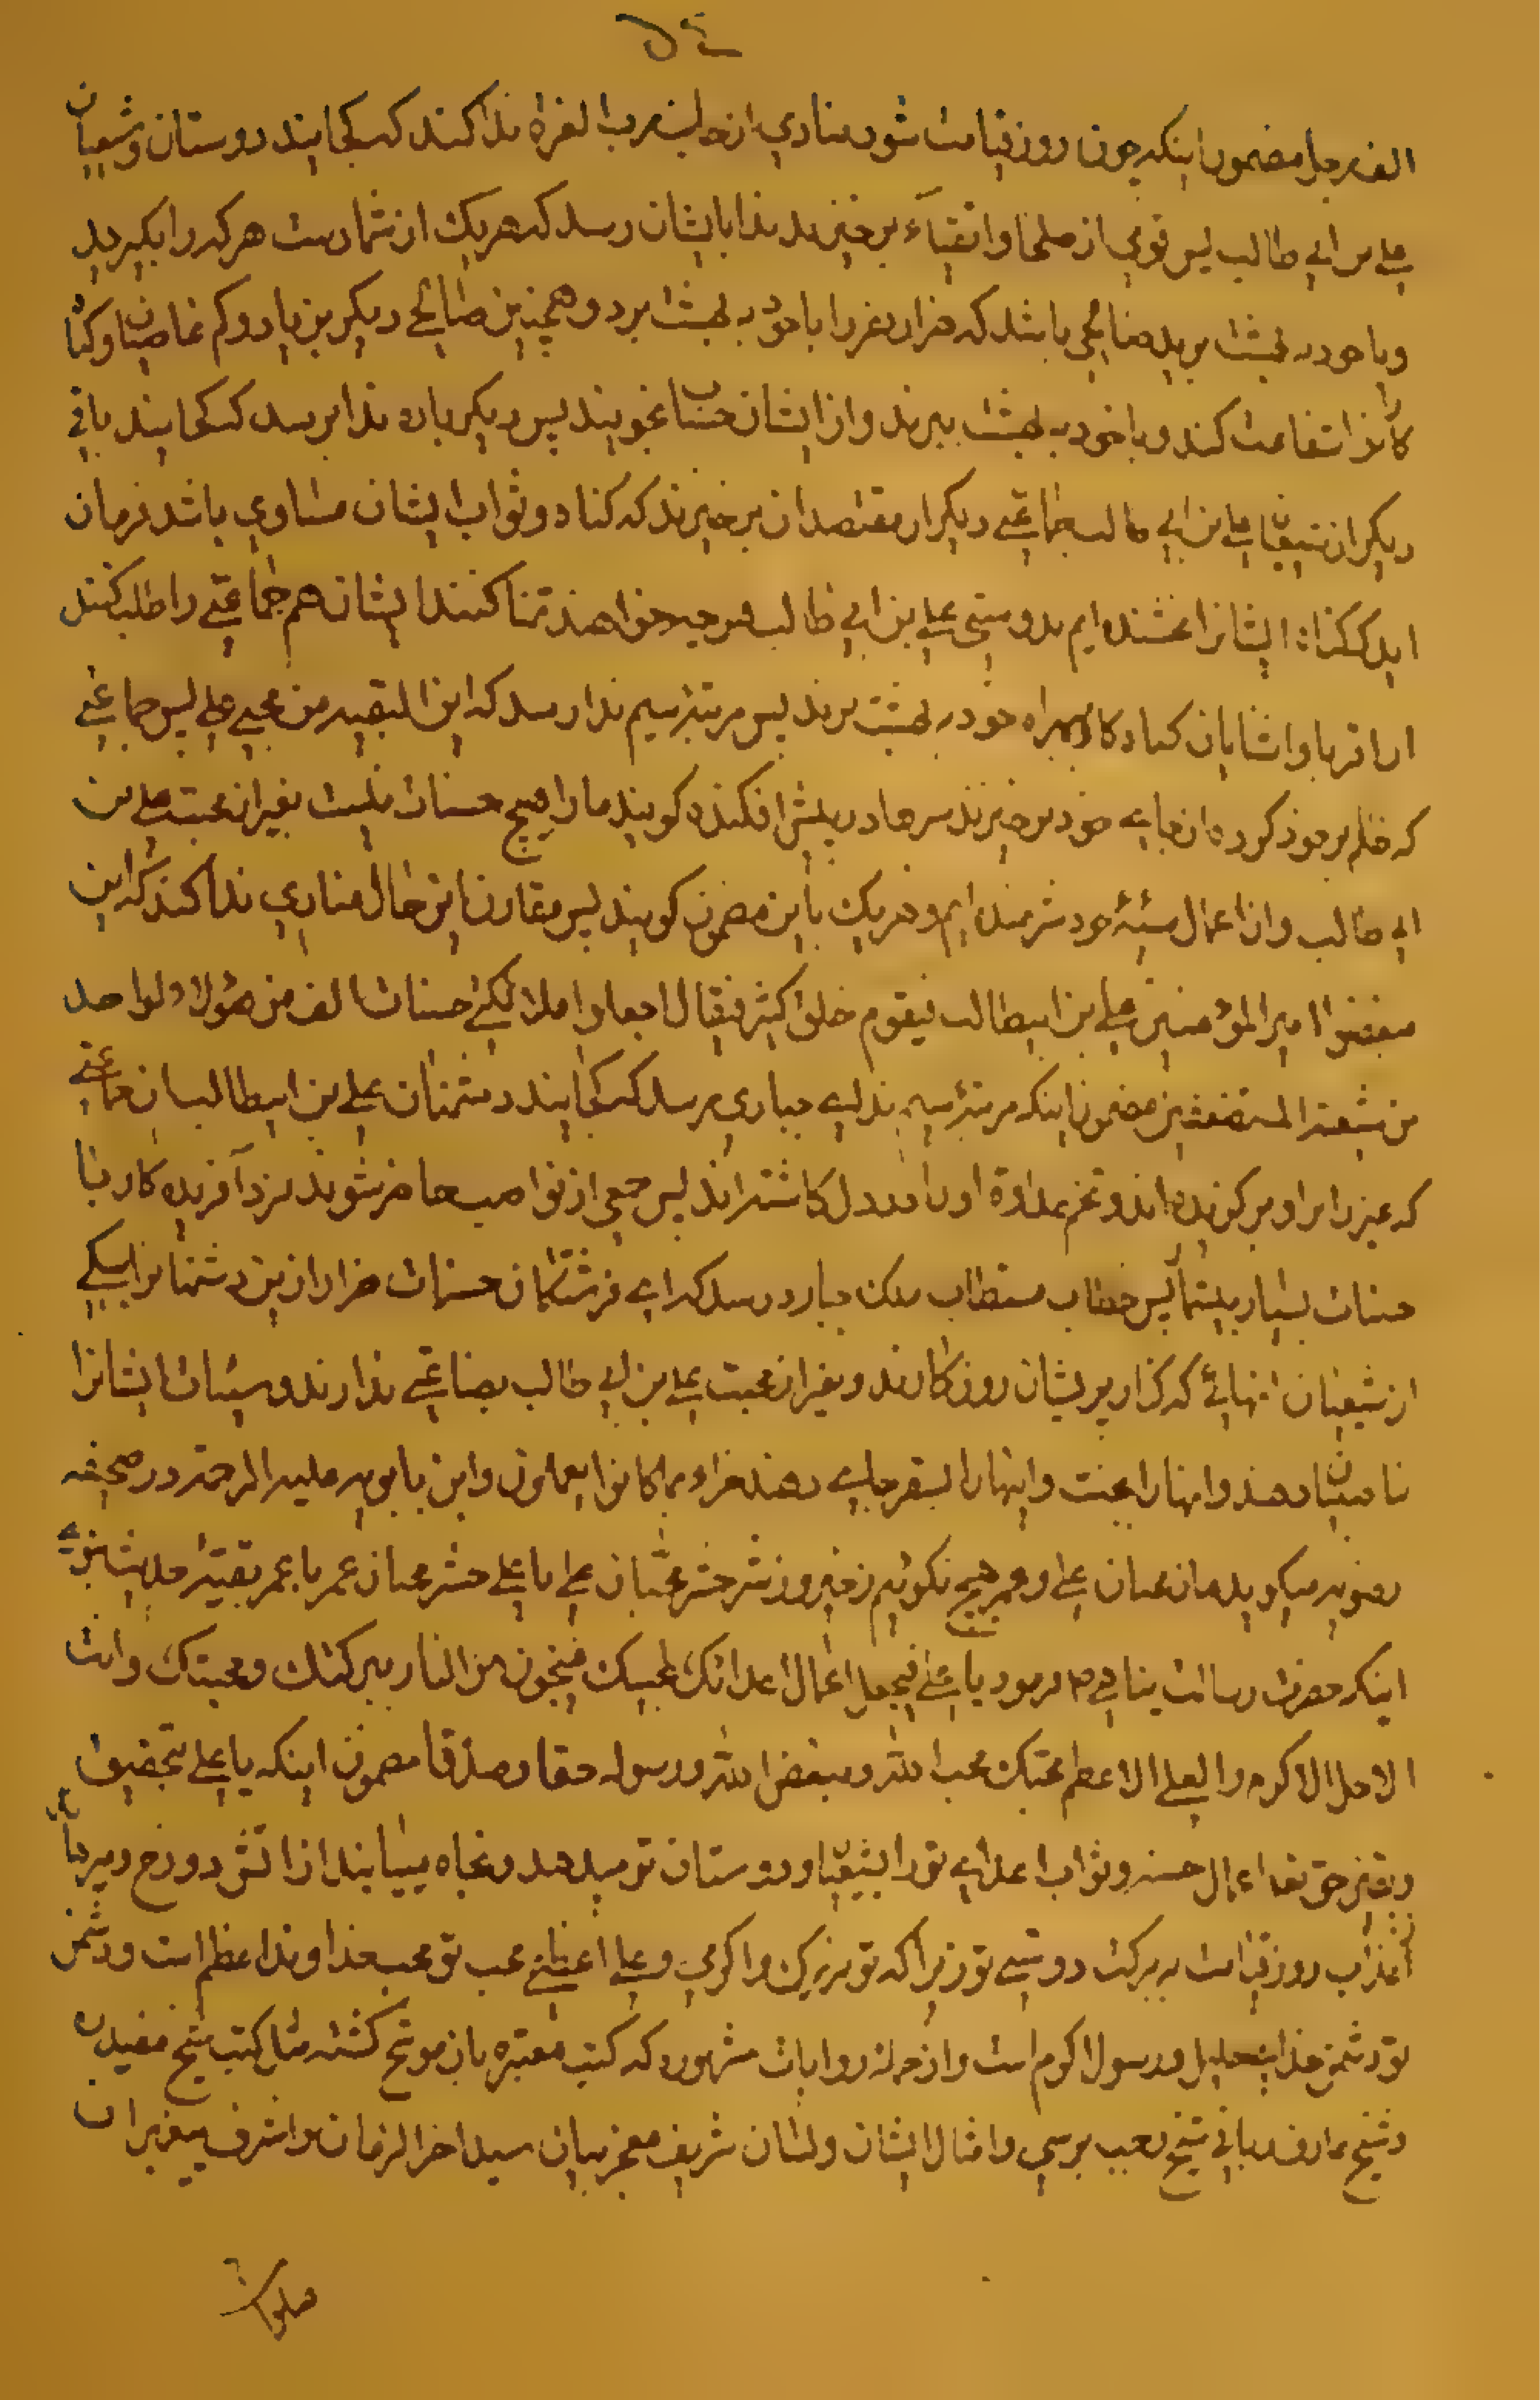 الف رجل مضمون اینکه چون روز قیامت شود منادی از جانب رب العزه ندا کند که کجایند دوستان و شیعیان
علی بن ابی طالب پس قومی از صلحا و اتقیاء برخیزند ندا بایشان رسد که هریک از شما دست هر که را بگیرید
و با خود به بهشت برید صالحی باشد که هزار نفر را با خود به بهشت برد و همچنین صالحی دیگر بزیاد و کم عاصیان و گناه
کارانرا شفاعت کند و با خود به بهشت ببرند و از ایشان حساب نجویند پس دیگر باره ندا برسد که کجایند باقی
دیگر از شیعیان علی بن ابی طالب جماعتی دیگر از مقتصدان برخیزند که گناه و ثواب ایشان مساوی باشد فرمان
اید که گناه ایشانرا بخشنده ایم بدوستی علی بن ابی طالب هرچه خواهند تمنا کنند ایشان هم جماعتی را طلب کنند
از اقربا و اشنایان گناه کار همراه خود به بهشت برند پس مرتبه سیم ندا رسد که این البقیه من محبی علی پس جماعتی
که ظلم بر خود کرده از جای خود برخیزند سرها در پیش افکنده گویند ما را هیچ حسنات نیست بغیر از محبت علی بن
ابی طالب و از اعمال سیئه خود شرمنده ایم و هریک باین مضمون گویند پس مقارن این حال منادی ندا کند که این
مبغضوا امیر المؤمنین علی بن ابیطالب فیقوم خلق کثیر فیقال اجعلوا ملائکتی حسنات الف من هؤلاء لواحد
من شیعته المستضعفین مضمون اینکه مرتبه سیم ندای جباری برسد که کجایند دشمنان علی بن ابیطالب ان جماعتی
که غیر را بر او برگزیده اند و تخم عداوة او را در دل کاشته اند پس جمعی از نواصب حاضر شوند نزد آفریده کار با
حسنات بسیار بیشمار پس خطاب مستطاب ملک جبار در رسد که ای فرشتگان حسنات هزار از این دشمنانرا بیکی
از شیعیان انهائی که گذار پریشان روزگارند و بغیر از محبت علی بن ابی طالب بضاعتی ندارند و سیئات ایشانرا
ناصبیان دهند و انها را بجنت و اینها را بسقر جای دهند جزاء بما کانوا یعملون و ابن بابویه علیه الرحمه در صحیفه
رضویه میگوید مان محبان علی و عمر هیچ نگوئیم زخیر و زشر حشر محبان علی با علی حشر محبان عمر با عمر بقیه حدیث نبوی
اینکه حضرت رسالت پناهی ص فرمود یا علی فیجعل اعمال اعدائک لمحبیک فینجون من النار ببرکتک و محبتک و انت
الاجل الاکرم و العلی الاعظم محبک محب الله و مبغض الله و رسوله حقا و صدقا مضمون اینکه یا علی بتحقیق
و یقین حق تعالی اعمال حسنه و ثواب اعدای تو را بشیعیان و دوستان تو میدهد و نجاه مییابند از اتش دوزخ و
از عذاب روز قیامت به برکت دوستی تو زیرا که تو بزرگ و اکرمی و علی محب تو محب خداوند اعظم است و دشمن
تو دشمن خدای جلیل و رسول اکرم است و از جمله روایات مشهوره که کتب معتبره بان موشح گشته مثل کتب شیخ مفید
و شیخ عارف ربانی شیخ رجب برسی و امثال ایشان و لسان شریف معجز بیان سید اخر الزمان و اشرف پیغمبران
صلوات